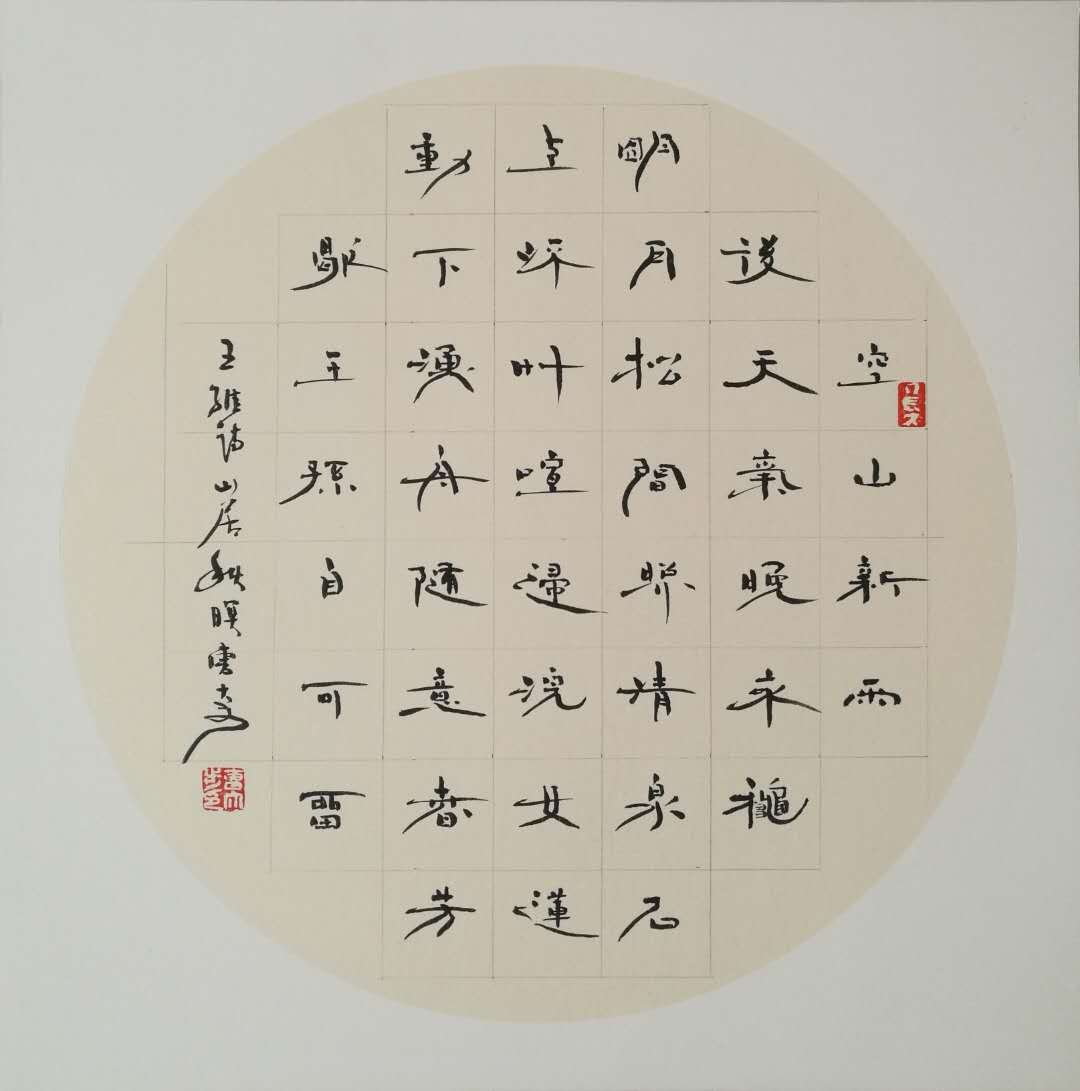 空山新雨
後天氣晚來穐
朙月松間照清泉石
上流竹喧歸浣女蓮
動下漁舟隨意春芳
歇王孫自可畱
王維詩山居秋暝